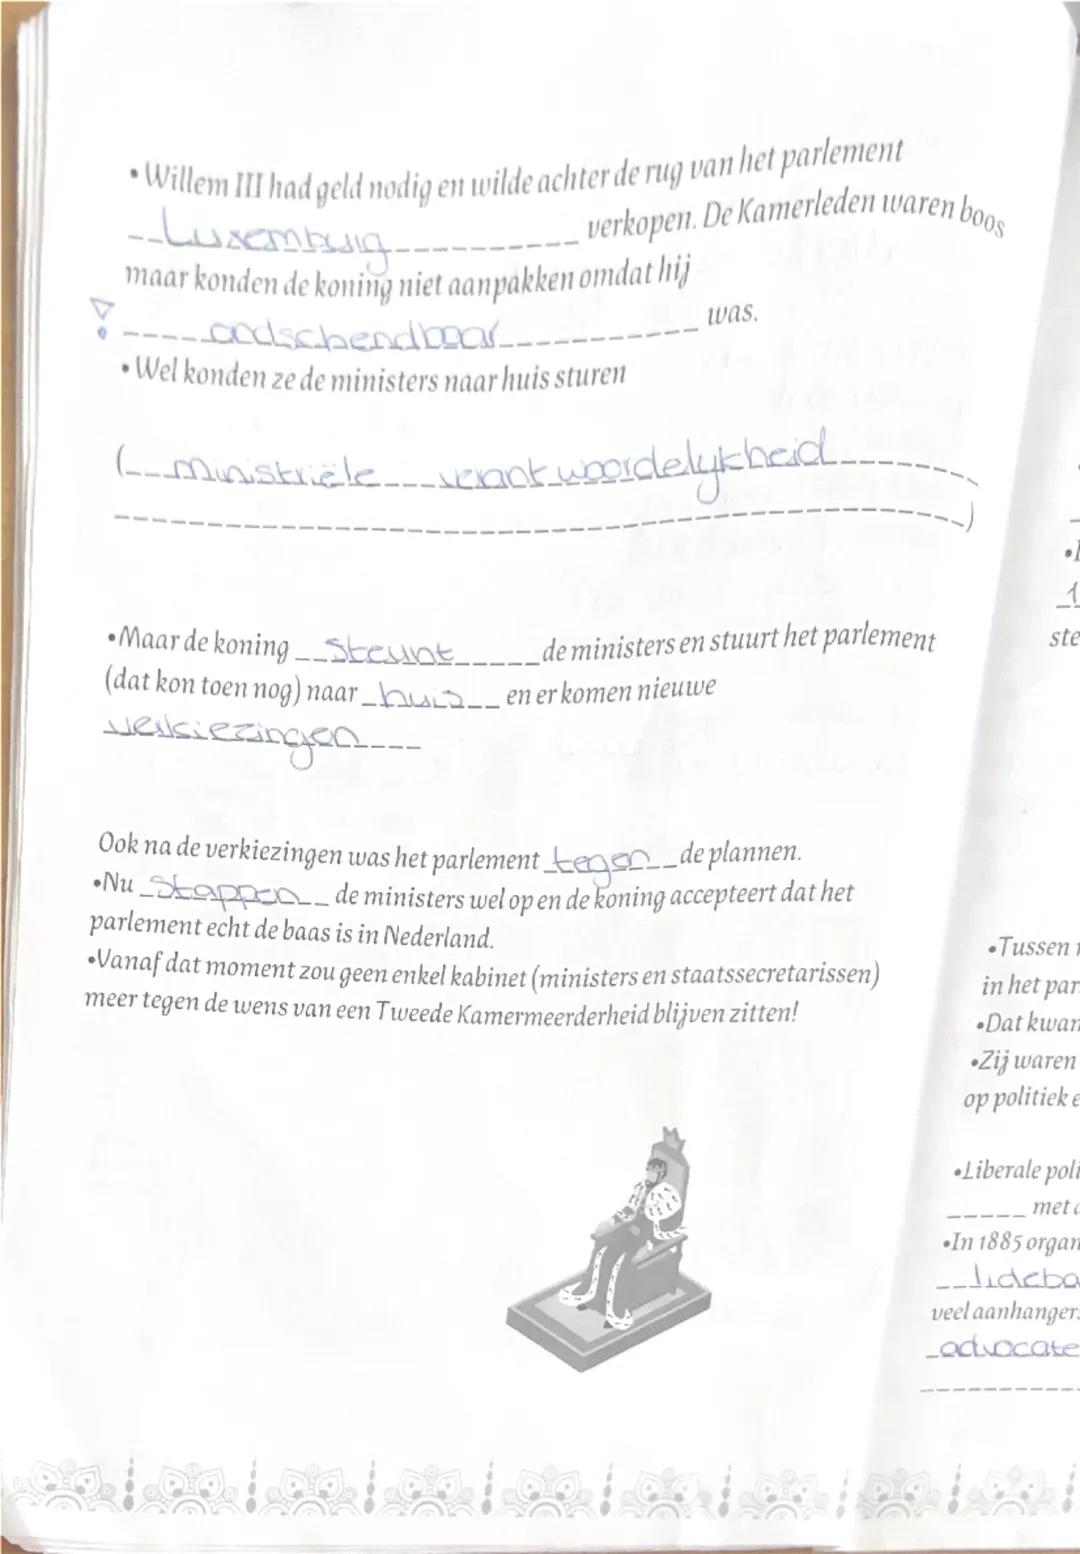 • Willem III had geld nodig en wilde achter de rug van het parlement
Luxemburg verkopen. De Kamerleden waren boos
maar konden de koning niet aanpakken omdat hij
ondschendbaar was.
• Wel konden ze de ministers naar huis sturen
( ministriële verantwoordelykheid
)
• Maar de koning steunt de ministers en stuurt het parlement
(dat kon toen nog) naar huis en er komen nieuwe
verkiezingen
Ook na de verkiezingen was het parlement tegen de plannen.
• Nu stappen de ministers wel op en de koning accepteert dat het
parlement echt de baas is in Nederland.
• Vanaf dat moment zou geen enkel kabinet (ministers en staatssecretarissen)
meer tegen de wens van een Tweede Kamermeerderheid blijven zitten!
1
ste
• Tussen
in het par
• Dat kwam
• Zij waren
op politiek e
• Liberale poli
met
• In 1885 organ
lideba
veel aanhangers
advocate